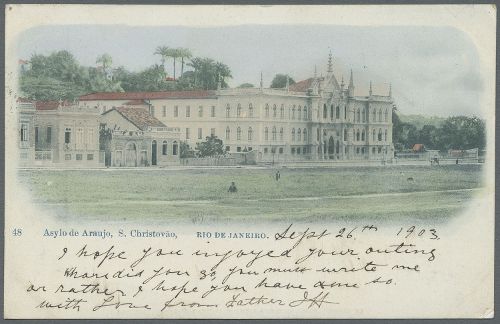 48 Asylo de Araujo, S. Christovão, RIO DE JANEIRO. Sept 26th 1903
I hope you injoyed your outing
did you go, you must write me
or rather I hope you have done so.
with Love from Father